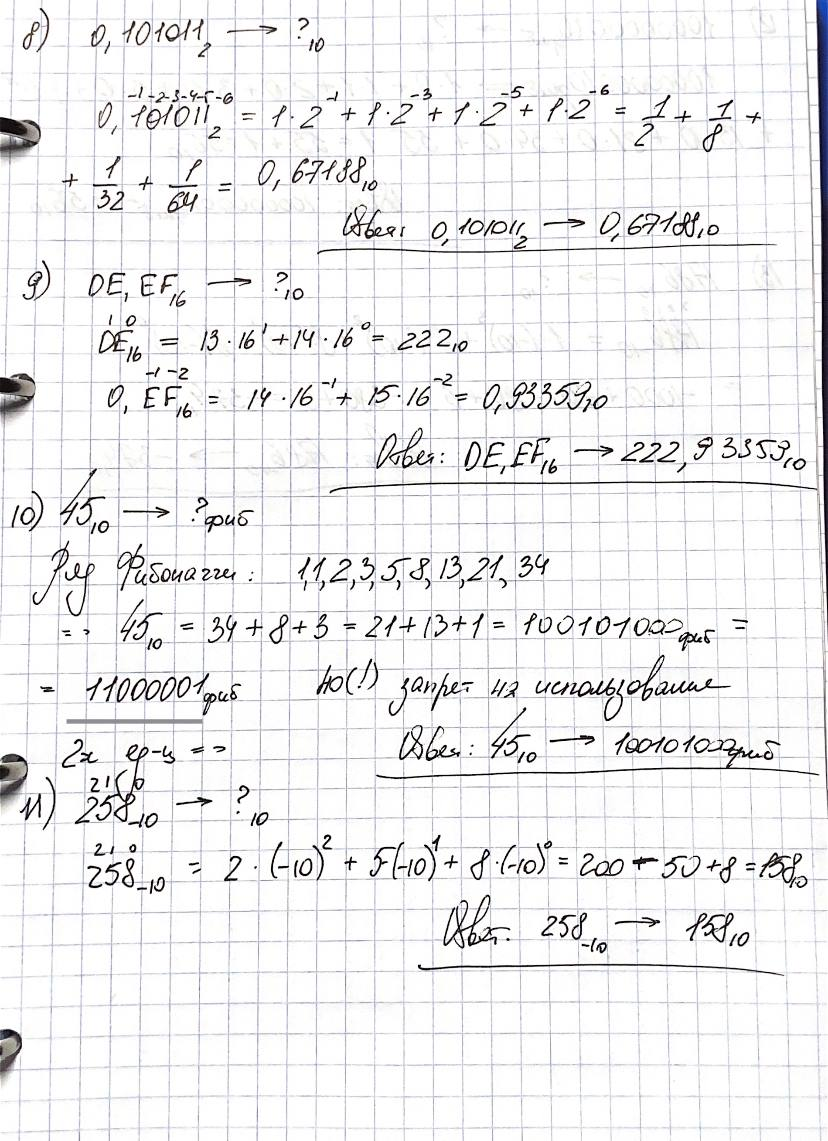 8) 0,101011₂ → ?₁₀
-1-2-3-4-5-6
0,101011₂ = 1·2⁻¹ + 1·2⁻³ + 1·2⁻⁵ + 1·2⁻⁶ = 1/2 + 1/8 +
+ 1/32 + 1/64 = 0,67188₁₀
Ответ: 0,101011₂ → 0,67188₁₀
9) DE,EF₁₆ → ?₁₀
1 0
DE₁₆ = 13·16¹ + 14·16⁰ = 222₁₀
-1 -2
0,EF₁₆ = 14·16⁻¹ + 15·16⁻² = 0,93359₁₀
Ответ: DE,EF₁₆ → 222,93359₁₀
10) 45₁₀ → ?фиб
Ряд Фибоначчи: 1,1,2,3,5,8,13,21,34
=> 45₁₀ = 34+8+3 = 21+13+1 = 10010100фиб =
= 11000001фиб Но(!) запрет на использование
2х ед-ц => Ответ: 45₁₀ → 10010100фиб
2 1 0
11) 258₋₁₀ → ?₁₀
2 1 0
258₋₁₀ = 2·(-10)² + 5(-10)¹ + 8·(-10)⁰ = 200 - 50 + 8 = 158₁₀
Ответ: 258₋₁₀ → 158₁₀